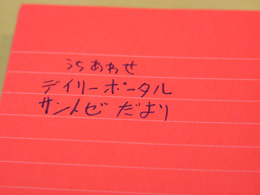 うちあわせ
デイリーポータル
サントゼ だより